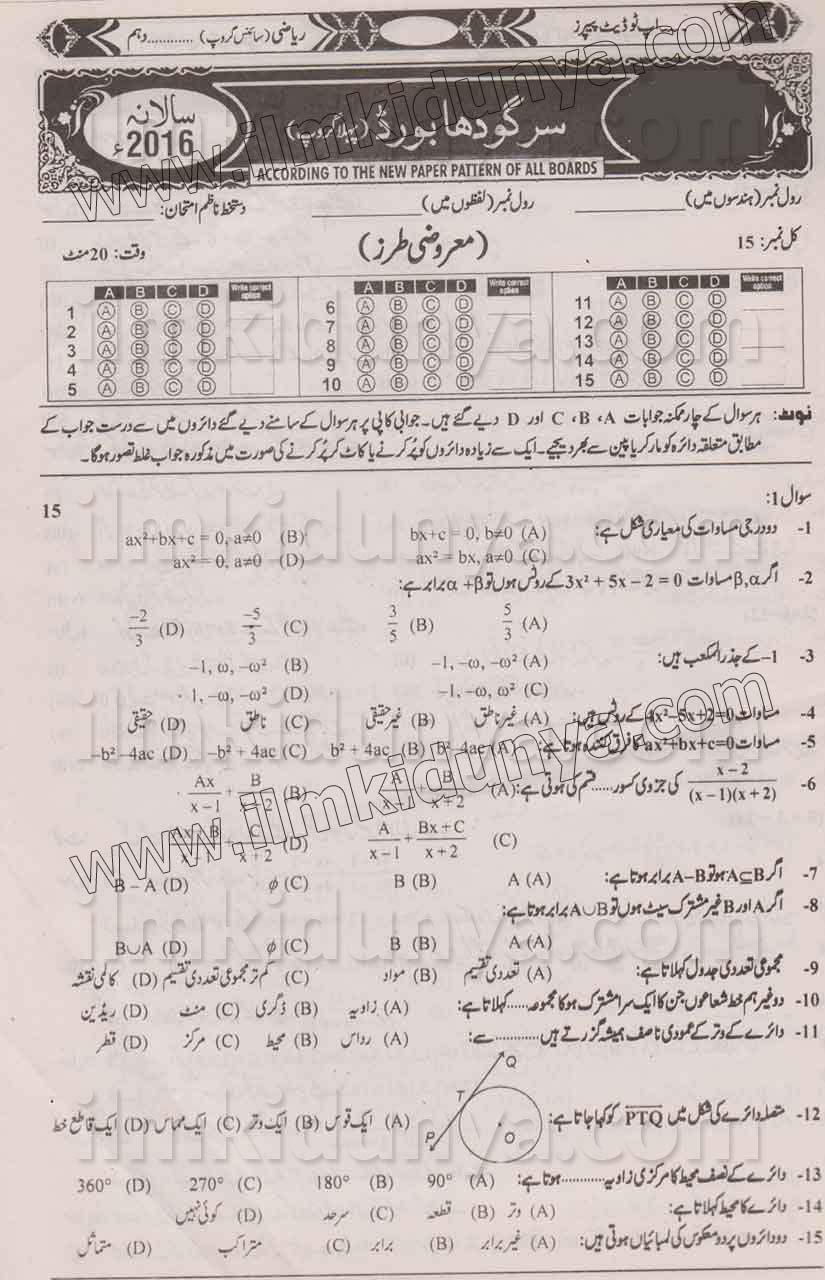 اپ ٹو ڈیٹ پیپرز
ریاضی (سائنس گروپ) ............دہم
سرگودھا بورڈ (پہلا گروپ)
سالانہ
2016ء
ACCORDING TO THE NEW PAPER PATTERN OF ALL BOARDS
رول نمبر (ہندسوں میں) رول نمبر (لفظوں میں) دستخط ناظم امتحان:
کل نمبر: 15 (معروضی طرز) وقت: 20 منٹ
A B C D Write correct option A B C D Write correct option A B C D Write correct option
1 A B C D 6 A B C D 11 A B C D
2 A B C D 7 A B C D 12 A B C D
3 A B C D 8 A B C D 13 A B C D
4 A B C D 9 A B C D 14 A B C D
5 A B C D 10 A B C D 15 A B C D
نوٹ: ہر سوال کے چار ممکنہ جوابات A، B، C اور D دیے گئے ہیں۔ جوابی کاپی پر ہر سوال کے سامنے دیے گئے دائروں میں سے درست جواب کے
مطابق متعلقہ دائرہ کو مارکر یا پین سے بھر دیجیے۔ ایک سے زیادہ دائروں کو پُر کرنے یا کاٹ کر پُر کرنے کی صورت میں مذکورہ جواب غلط تصور ہوگا۔
سوال 1: 15
1- دو درجی مساوات کی معیاری شکل ہے: (A) bx+c = 0, b≠0 (B) ax²+bx+c = 0, a≠0
(C) ax² = bx, a≠0 (D) ax² = 0, a≠0
2- اگر β,α مساوات 3x² + 5x – 2 = 0 کے روٹس ہوں تو α +β برابر ہے:
(A) 5/3 (B) 3/5 (C) –5/3 (D) –2/3
3- –1 کے جذر المکعب ہیں: (A) –1, –ω, –ω² (B) –1, ω, –ω²
(C) –1, –ω, ω² (D) 1, –ω, –ω²
4- مساوات 4x²–5x+2=0 کے روٹس ہیں: (A) غیر ناطق (B) غیر حقیقی (C) ناطق (D) حقیقی
5- مساوات ax²+bx+c=0 کا فرق کنندہ ہوتا ہے: (A) b²–4ac (B) b² + 4ac (C) –b² + 4ac (D) –b²–4ac
6- x – 2/(x – 1)(x + 2) کی جزوی کسور......قسم کی ہوتی ہے: (A) A/x – 1 + B/x + 2 (B) Ax/x – 1 + B/x + 2
(C) A/x – 1 + Bx + C/x + 2 (D) Ax + B/x – 1 + C/x + 2
7- اگر A⊆B ہو تو A–B برابر ہوتا ہے: (A) A (B) B (C) ϕ (D) B – A
8- اگر A اور B غیر مشترک سیٹ ہوں تو A∪B برابر ہوتا ہے:
(A) A (B) B (C) ϕ (D) B∪A
9- مجموعی تعددی جدول کہلاتا ہے: (A) تعددی تقسیم (B) مواد (C) کم تر مجموعی تعددی تقسیم (D) کالمی نقشہ
10- دو غیر ہم خط شعاعوں جن کا ایک سرا مشترک ہو کا مجموعہ......کہلاتا ہے: (A) زاویہ (B) ڈگری (C) منٹ (D) ریڈین
11- دائرے کے وتر کے عمودی ناصف ہمیشہ گزرتے ہیں............سے: (A) رداس (B) محیط (C) مرکز (D) قطر
Q
T
O
P
12- متصلہ دائرے کی شکل میں PTQ کو کہا جاتا ہے: (A) ایک قوس (B) ایک وتر (C) ایک مماس (D) ایک قاطع خط
13- دائرے کے نصف محیط کا مرکزی زاویہ............ہوتا ہے: (A) 90° (B) 180° (C) 270° (D) 360°
14- دائرے کا محیط کہلاتا ہے: (A) وتر (B) قطعہ (C) سرحد (D) کوئی نہیں
15- دو دائروں پر دو معکوس کی لمبائیاں ہوتی ہیں: (A) غیر برابر (B) برابر (C) متراکب (D) متماثل
www.ilmkidunya.com
ilmkidunya.com
ilmkidunya.com
www.ilmkidunya.com
ilmkidunya.com
ilmkidunya.com